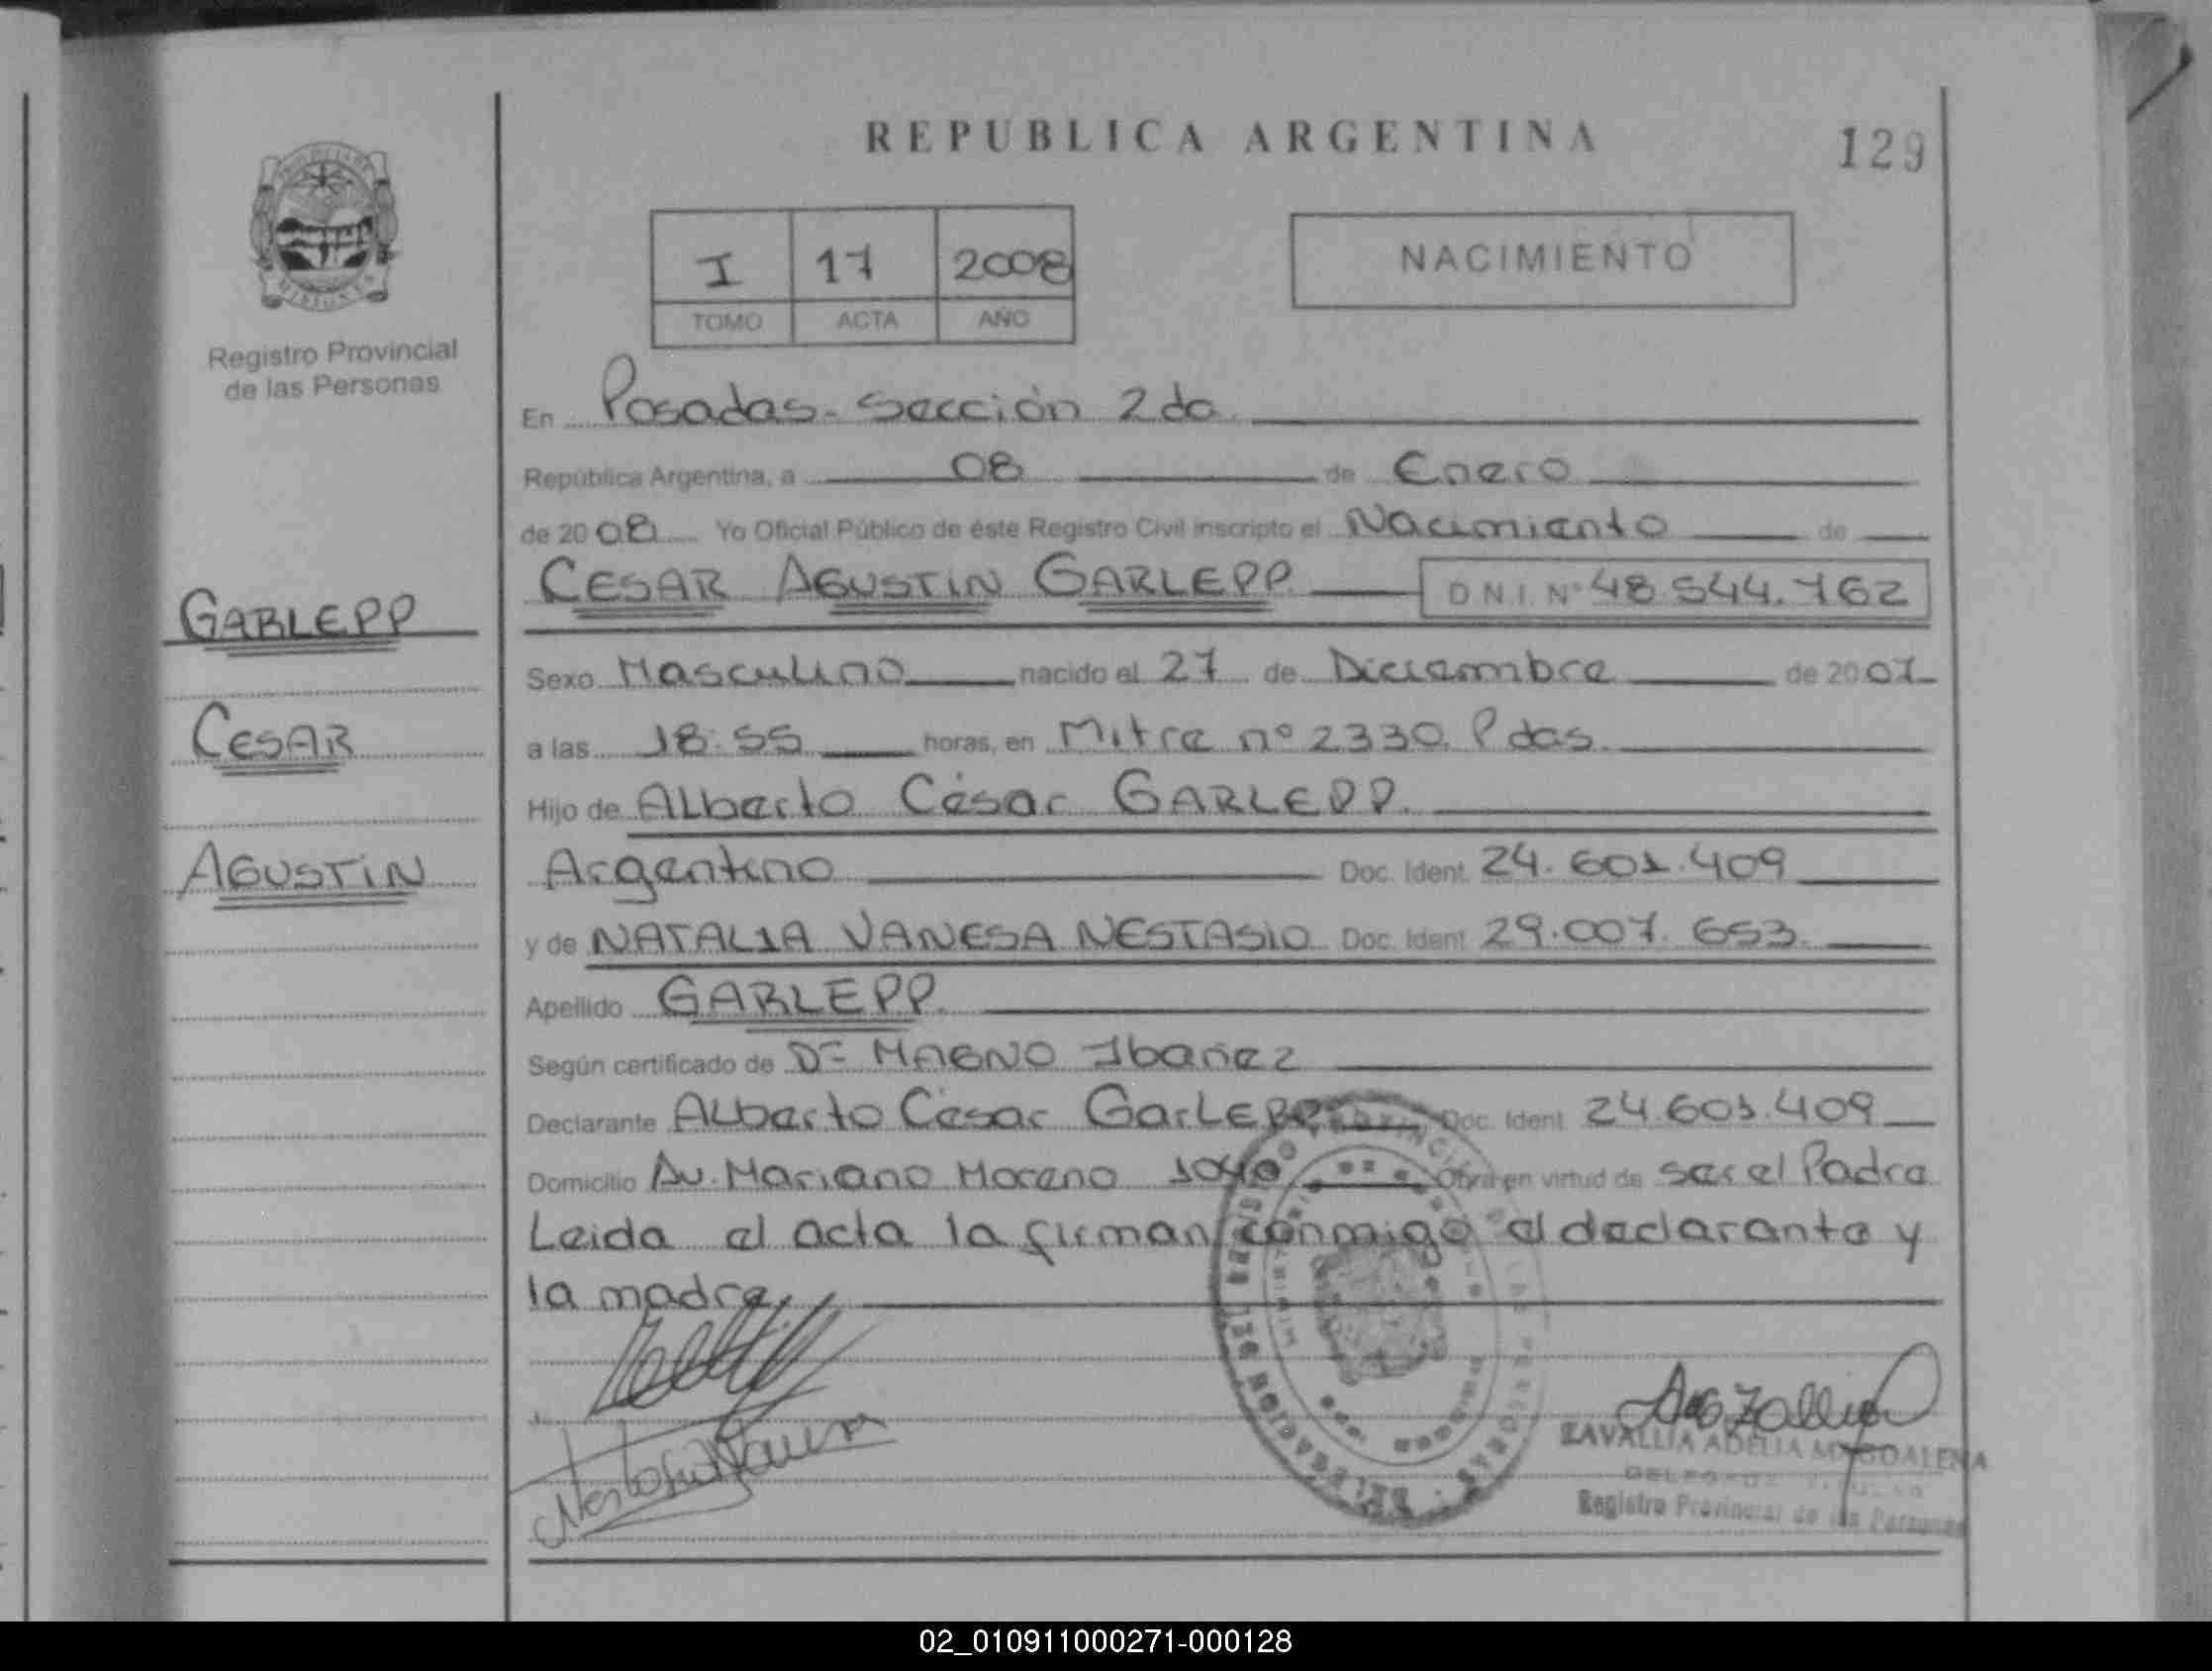 REPUBLICA ARGENTINA
129
I 17 2008
TOMO ACTA AÑO
NACIMIENTO
MISIONES
Registro Provincial
de las Personas
En Posadas - Sección 2da
República Argentina, a 08 de Enero
de 2008 Yo Oficial Público de éste Registro Civil inscripto el Nacimiento de
CESAR AGUSTIN GARLEPP. D.N.I. Nº 48.544.762
GARLEPP
CESAR
AGUSTIN
Sexo Masculino nacido el 27 de Diciembre de 2007
a las 18:55 horas, en Mitre nº 2330. Pdas.
Hijo de Alberto César GARLEPP.
Argentino Doc. Ident. 24.601.409
y de NATALIA VANESA NESTASIO Doc. Ident. 29.007.653.
Apellido GARLEPP.
Según certificado de Dr MAGNO Ibañez
Declarante Alberto César GarLEPP Doc. Ident. 24.601.409
Domicilio Av. Mariano Moreno 1040 Obra en virtud de ser el Padre
Leida el acta la firman conmigo el declarante y
la madre.
ZAVALLIA ADELIA MAGDALENA
Registro Provincial de las Personas
02_010911000271-000128